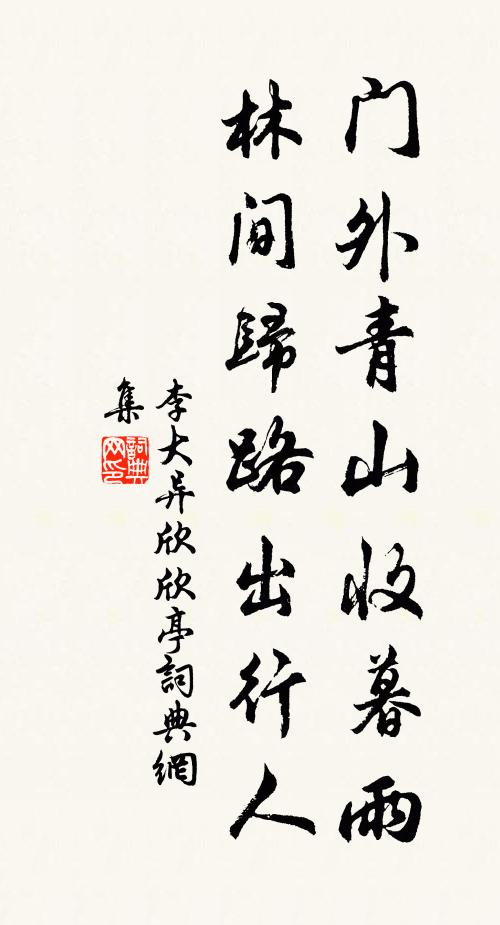 门外青山收暮雨
林间歸路出行人
李大异欣欣亭詞典網
集
詞典
网印